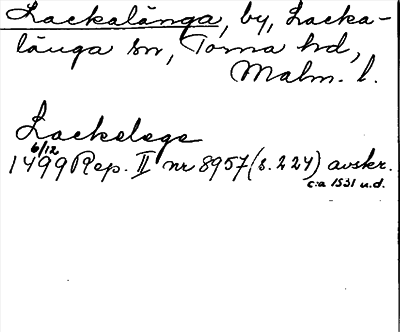 Lackalänga, by, Lacka-
länga sn, Torna hd,
Malm. l.
Lackelege
6/12
1499 Rep. II nr 8957 (s. 224) avskr.
c:a 1531 u.d.